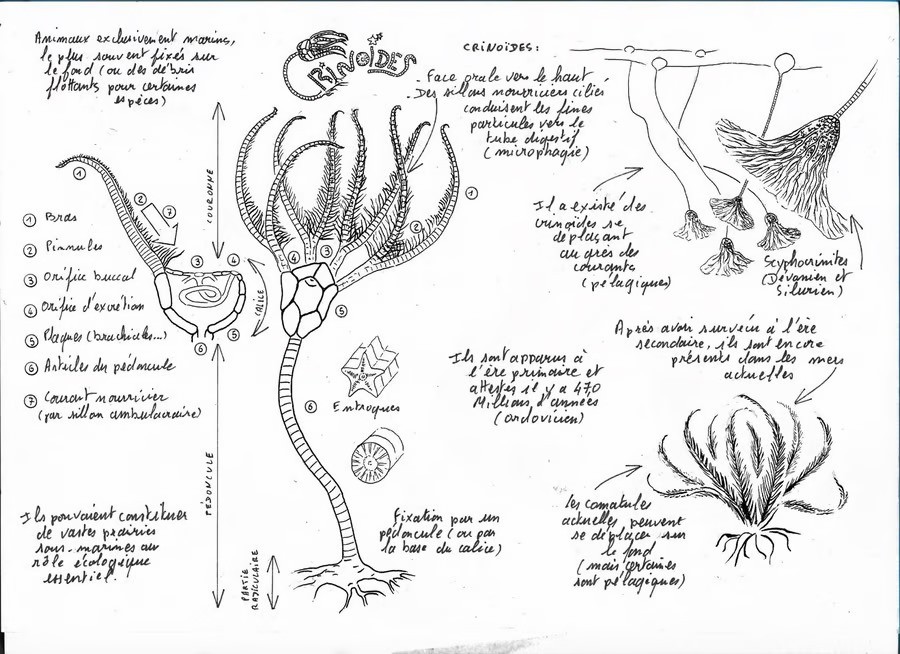 Animaux exclusivement marins,
le plus souvent fixés sur
le fond (ou des débris
flottants pour certaines
espèces)
CRINOÏDES
CRINOÏDES :
- Face orale vers le haut
- Des sillons nourriciers ciliés
conduisent les fines
particules vers le
tube digestif
(microphagie)
COURONNE
CALICE
PEDONCULE
PARTIE
RADICULAIRE
① Bras
② Pinnules
③ Orifice buccal
④ Orifice d'excrétion
⑤ Plaques (brachiales...)
⑥ Articles du pédoncule
⑦ Courant nourricier
(par sillon ambulacraire)
1
2
7
3
4
5
6
4
3
2
1
5
6
Il a existé des
crinoïdes se
déplaçant
au grès des
courants
(pélagiques)
Scyphocrinites
(Dévonien et
Silurien)
Ils sont apparus à
l'ère primaire et
attestés il y a 470
Millions d'années
(ordovicien)
Après avoir survécu à l'ère
secondaire, ils sont encore
présents dans les mers
actuelles
Entroques
Ils pouvaient constituer
de vastes prairies
sous-marines au
rôle écologique
essentiel.
Fixation par un
pédoncule (ou par
la base du calice)
Les comatules
actuelles peuvent
se déplacer sur
le fond
(mais certaines
sont pélagiques)